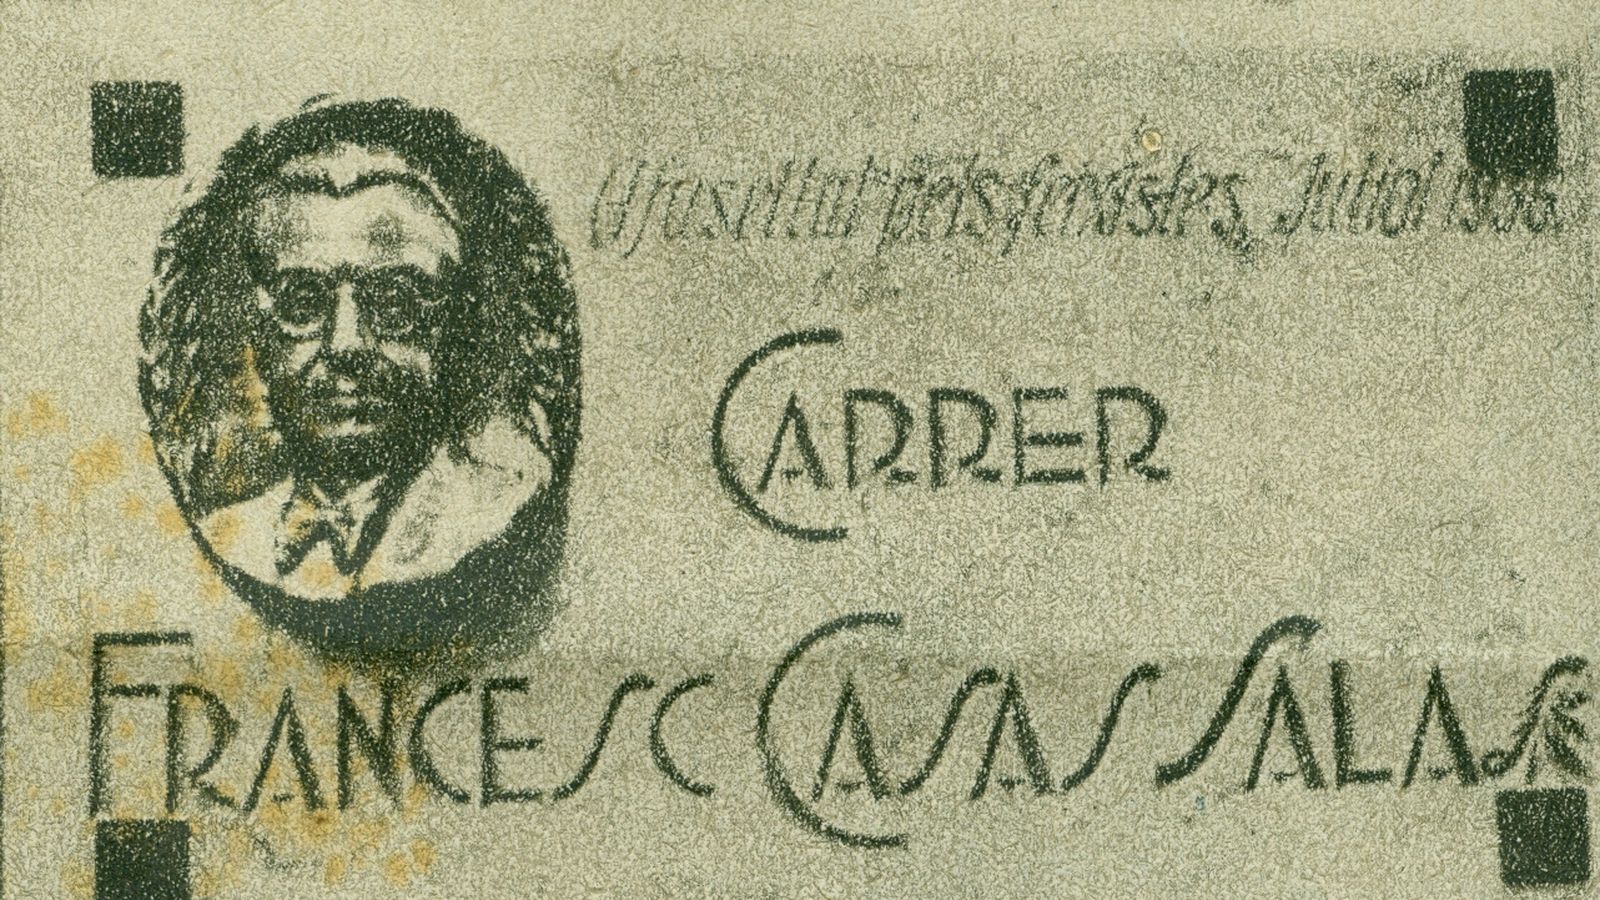 Afusellat pels feixistes, Juliol 1938.
CARRER
FRANCESC CASAS SALA